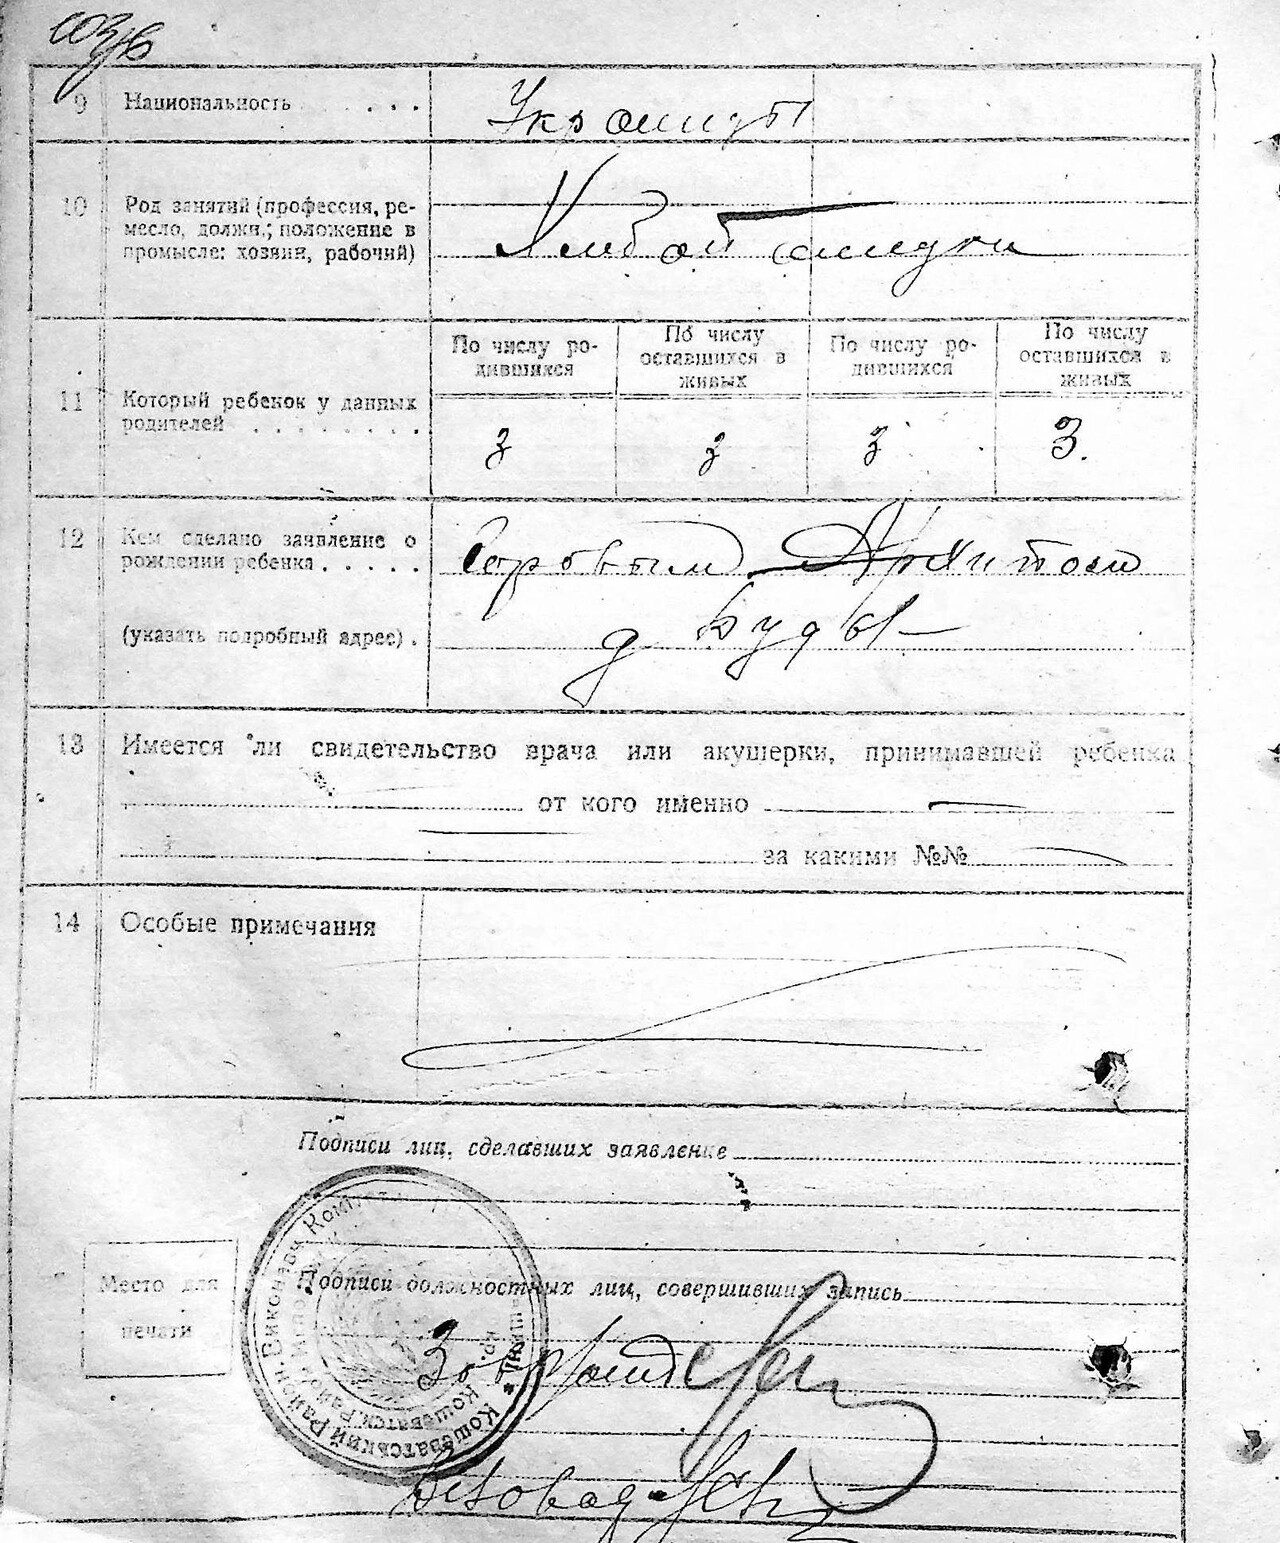 9 Национальность . . . . .
Украинцы
10 Род занятий (профессия, ре-
месло, должн.; положение в
промысле: хозяин, рабочий)
По числу ро-
дившихся
По числу
оставшихся в
живых
По числу ро-
дившихся
По числу
оставшихся в
живых
11 Который ребенок у данных
родителей . . . . . . . .
3 3 3 3.
12 Кем сделано заявление о
рождении ребенка . . . . .
Архипом
(указать подробный адрес) .
д Буды
13 Имеется ли свидетельство врача или акушерки, принимавшей ребенка
от кого именно
за какими №№
14 Особые примечания
Подписи лиц, сделавших заявление
Место для
печати
Подписи должностных лиц, совершивших запись
Кошеватський Район. Виконавч. Коміт
Зав